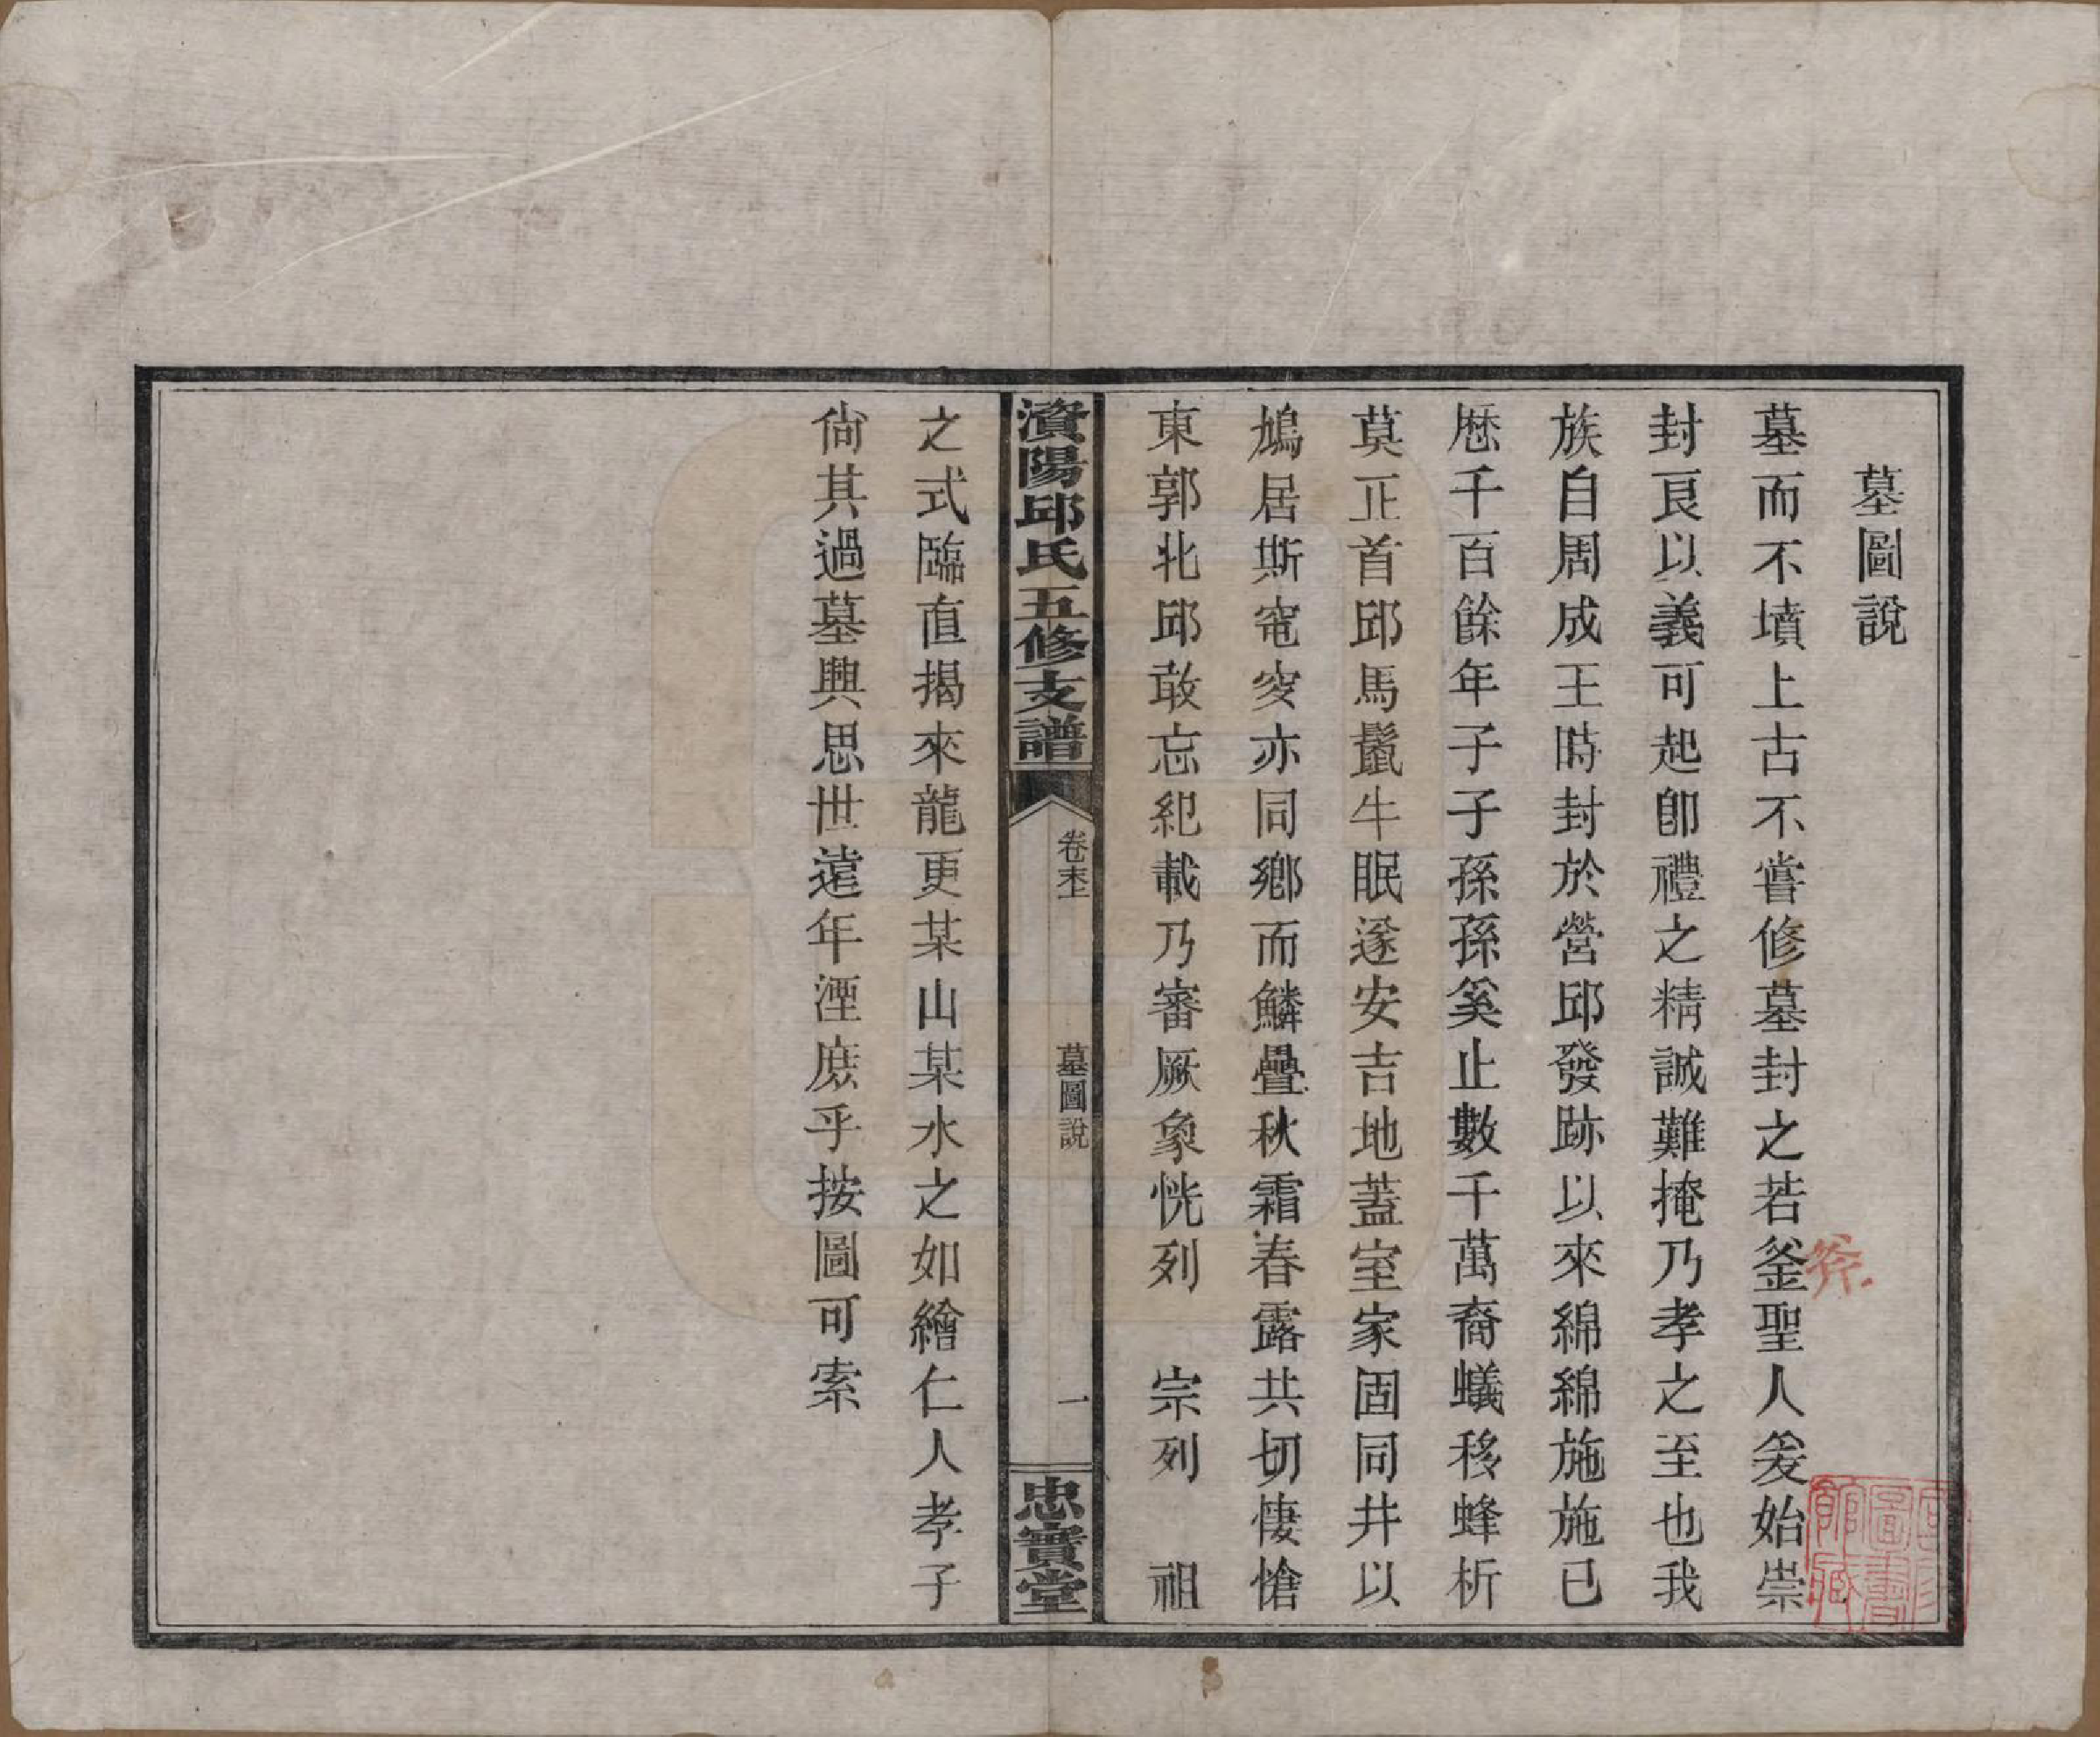 墓圖說
墓而不墳上古不嘗修墓封之若釜聖人爰始崇
斧
封良以義可起卽禮之精誠難掩乃孝之至也我
族自周成王時封於營邱發跡以來綿綿施施已
歷千百餘年子子孫孫奚止數千萬裔蟻移蜂析
莫正首邱馬鬣牛眠遂安吉地蓋室家固同井以
鳩居斯窀穸亦同鄉而鱗疊秋霜春露共切悽愴
東郭北邱敢忘紀載乃審厥象恍列　宗列　祖
濱陽邱氏五修支譜
卷末上
墓圖說
一
忠實堂
之式臨直揭來龍更某山某水之如繪仁人孝子
尙其過墓興思世遠年湮庶乎按圖可索